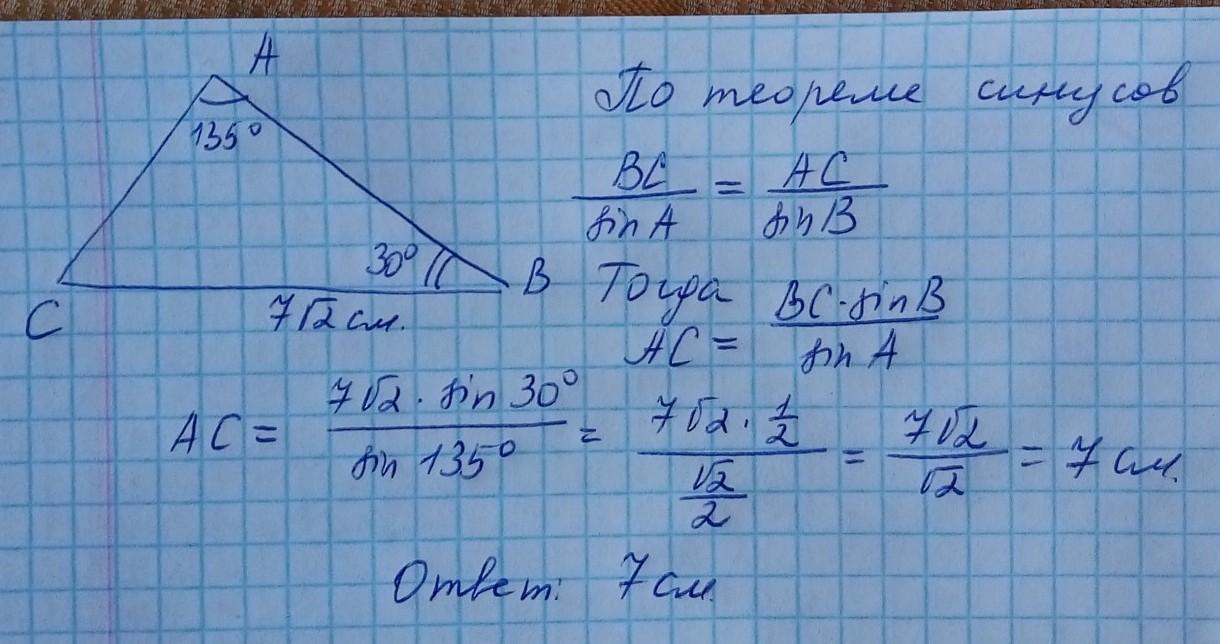 A
135°
30°
C
B
7√2 см.
По теореме синусов
BC/sin A = AC/sin B
Тогда
AC = BC·sin B/sin A
AC = 7√2 · sin 30°/sin 135° = 7√2 · 1/2/√2/2 = 7√2/√2 = 7 см.
Ответ: 7 см.